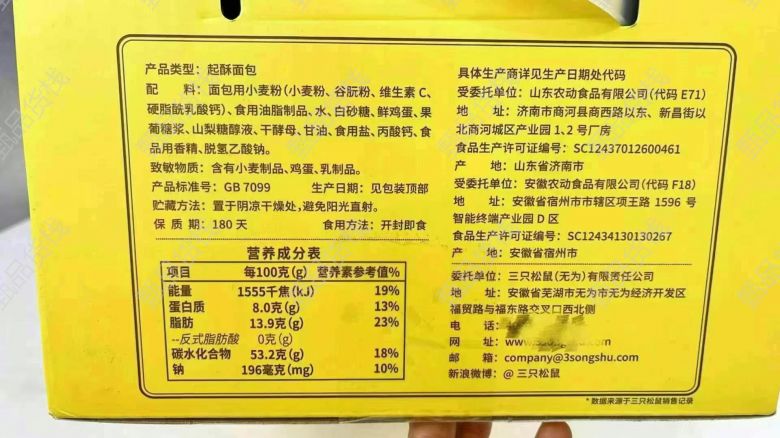 产品类型：起酥面包
配 料：面包用小麦粉（小麦粉、谷朊粉、维生素C、
硬脂酰乳酸钙）、食用油脂制品、水、白砂糖、鲜鸡蛋、果
葡糖浆、山梨糖醇液、干酵母、甘油、食用盐、丙酸钙、食
品用香精、脱氢乙酸钠。
致敏物质：含有小麦制品、鸡蛋、乳制品。
产品标准号：GB 7099 生产日期：见包装顶部
贮藏方法：置于阴凉干燥处，避免阳光直射。
保 质 期：180 天 食用方法：开封即食
营养成分表
项目 每100克(g) 营养素参考值%
能量 1555千焦(kJ) 19%
蛋白质 8.0克(g) 13%
脂肪 13.9克(g) 23%
--反式脂肪酸 0克(g)
碳水化合物 53.2克(g) 18%
钠 196毫克(mg) 10%
具体生产商详见生产日期处代码
受委托单位：山东农动食品有限公司（代码 E71）
地 址：济南市商河县商西路以东、新昌街以
北商河城区产业园 1、2 号厂房
食品生产许可证编号：SC12437012600461
产 地：山东省济南市
受委托单位：安徽农动食品有限公司（代码 F18）
地 址：安徽省宿州市市辖区项王路 1596 号
智能终端产业园 D 区
食品生产许可证编号：SC12434130130267
产 地：安徽省宿州市
委托单位：三只松鼠（无为）有限责任公司
地 址：安徽省芜湖市无为市无为经济开发区
福贸路与福东路交叉口西北侧
电 话：
网 址：
邮 箱：company@3songshu.com
新浪微博：@ 三只松鼠
*数据来源于三只松鼠销售记录